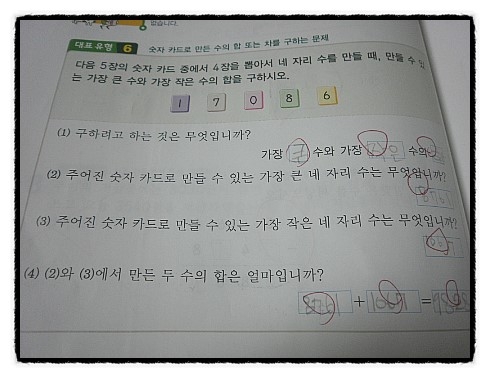 없습니다.
대표 유형 6 숫자 카드로 만든 수의 합 또는 차를 구하는 문제
다음 5장의 숫자 카드 중에서 4장을 뽑아서 네 자리 수를 만들 때, 만들 수 있
는 가장 큰 수와 가장 작은 수의 합을 구하시오.
1 7 0 8 6
(1) 구하려고 하는 것은 무엇입니까?
가장 큰 수와 가장 작은 수의
(2) 주어진 숫자 카드로 만들 수 있는 가장 큰 네 자리 수는 무엇입니까?
8761
(3) 주어진 숫자 카드로 만들 수 있는 가장 작은 네 자리 수는 무엇입니까?
(4) (2)와 (3)에서 만든 두 수의 합은 얼마입니까?
8761 + =